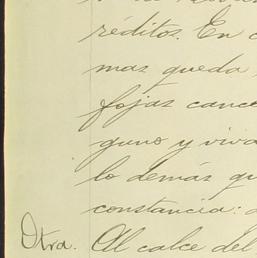 réditos. En
mas queda
fojas cance
guno y viva
lo demás qu
constancia:
Otra. Al calce del